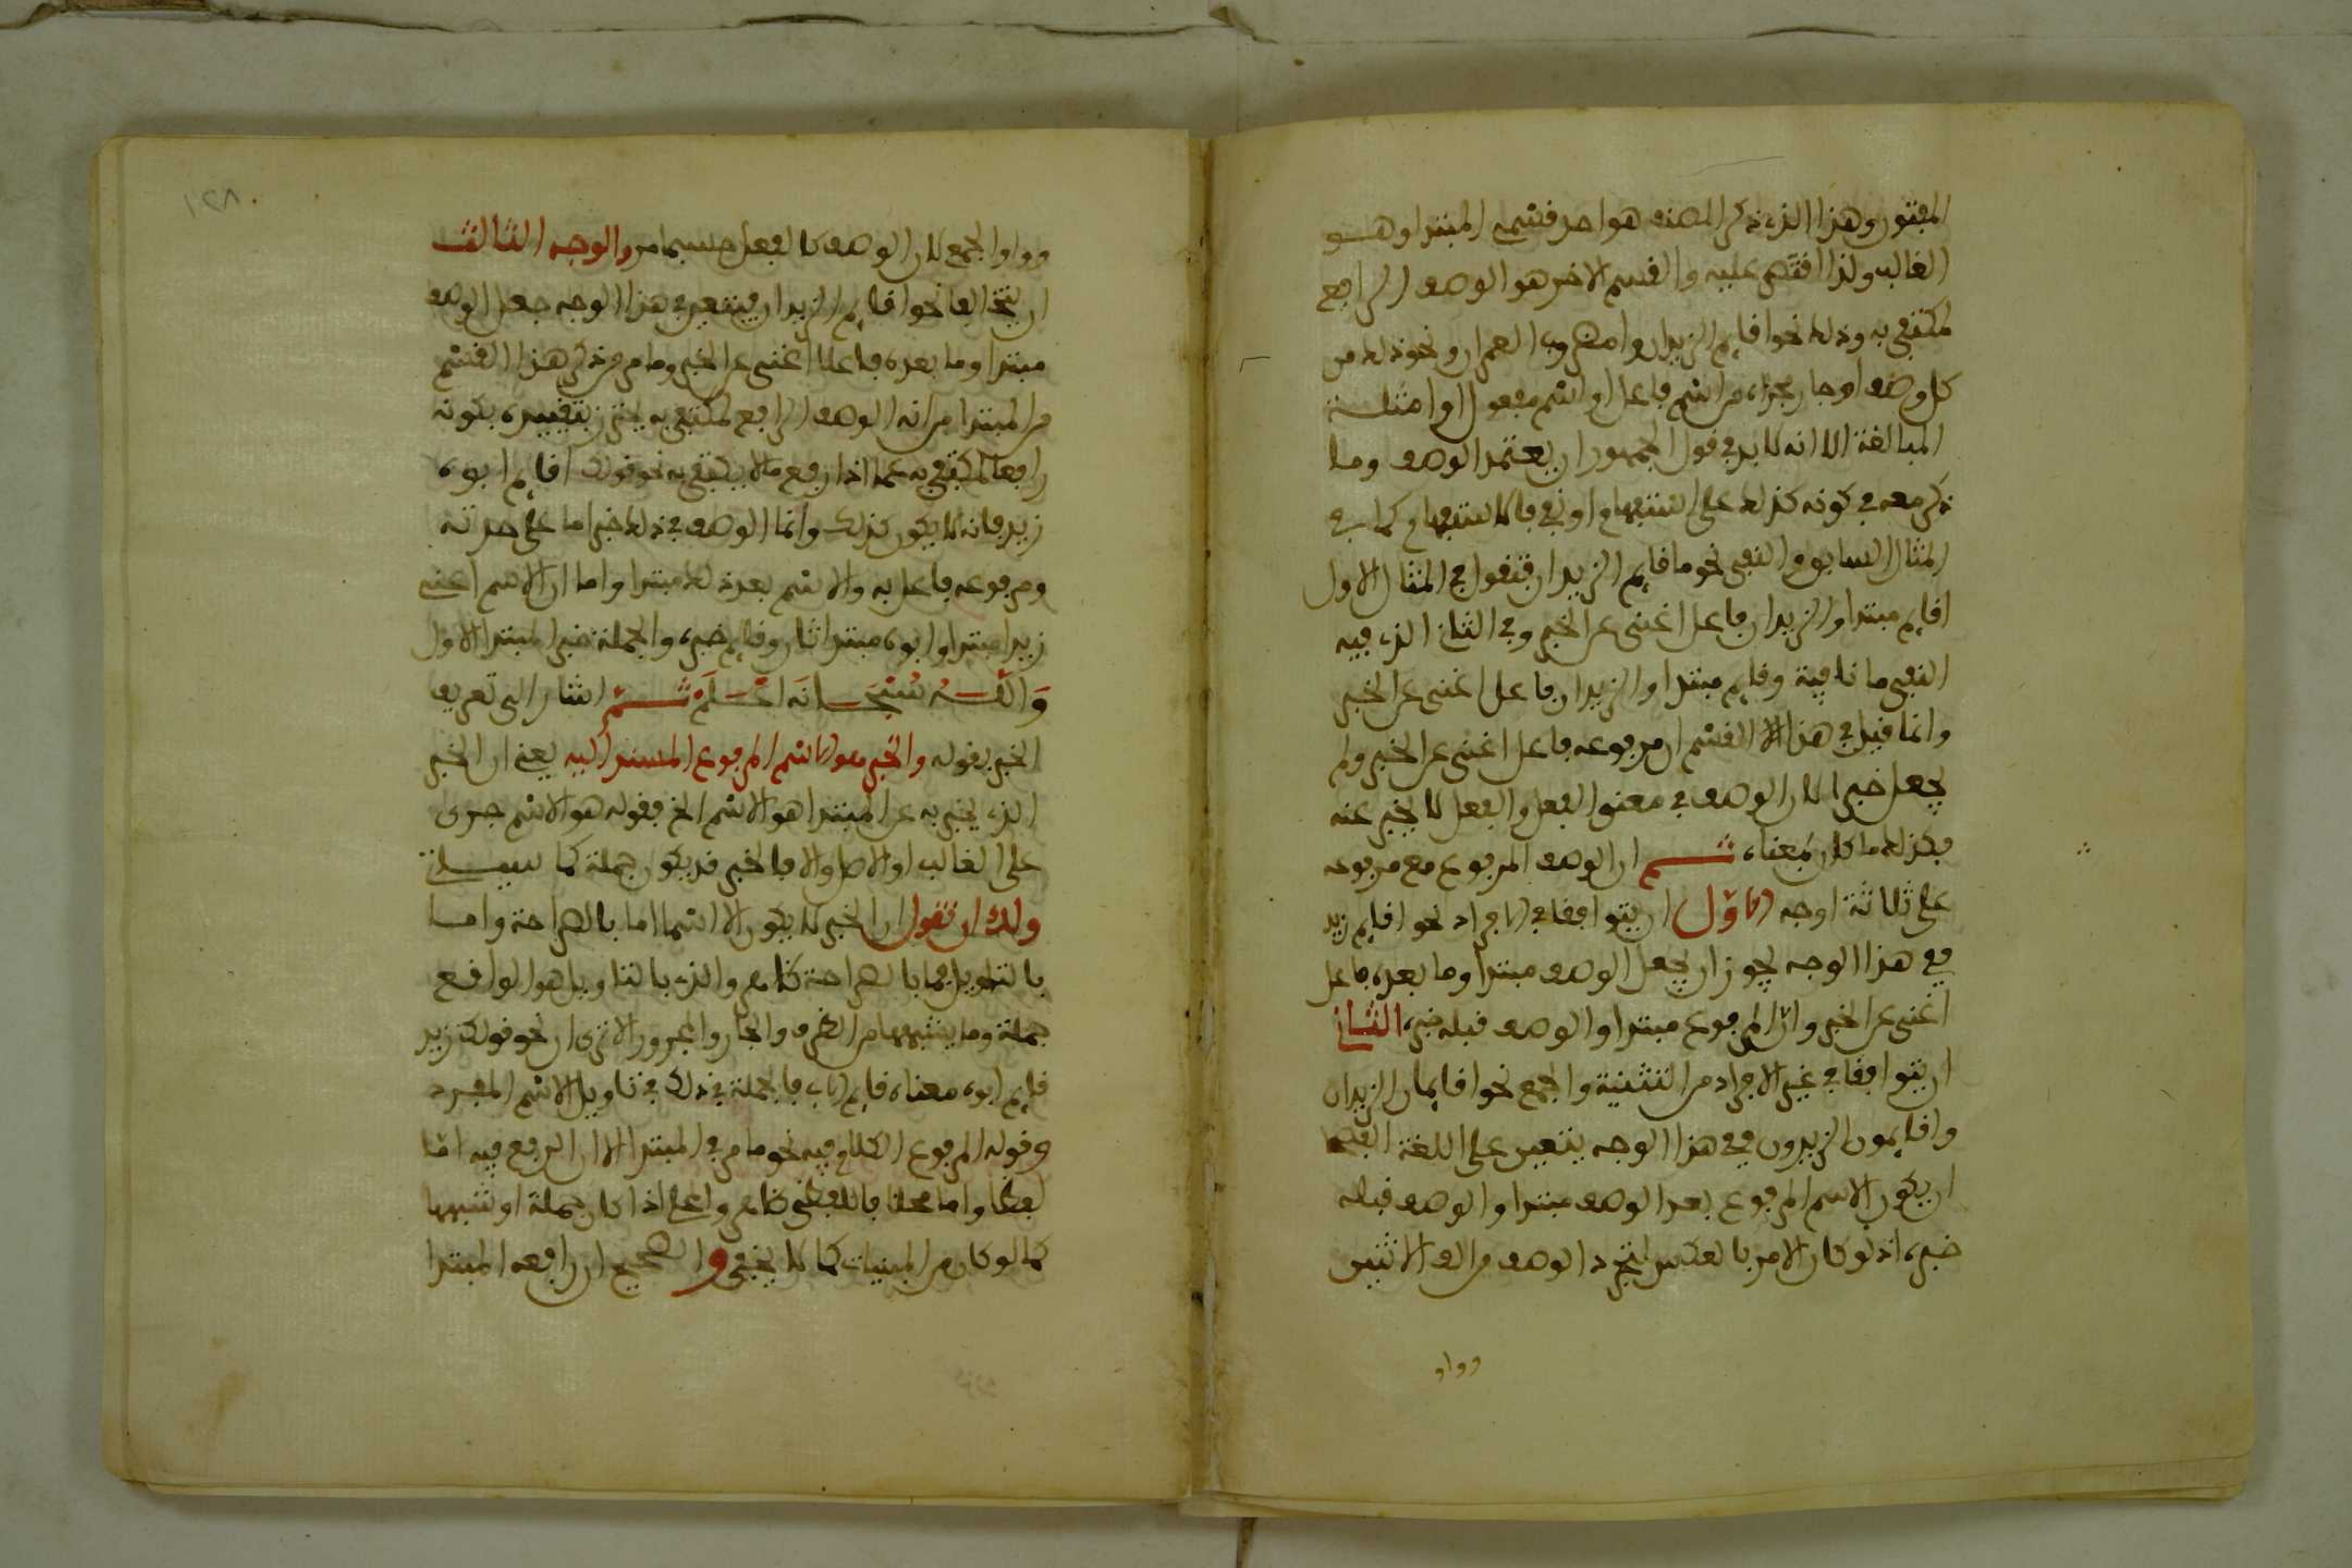 المفتون وهذا الذي ذكر المصنف هو احد قسمي المبتدا وهو
الغالب ولذا اقتصر عليه والقسم الاخر هو الوصف الرافع
لمكتفى به وذلك نحو اقايم الزيدان وامضروب العمران ونحو ذلك من
كل وصف او جار مجراه من اسم فاعل او اسم مفعول او امثلة
المبالغة الا انه لا بد في قول الجمهور ان يعتمد الوصف وما
ذكر معه في كونه كذلك على استفهام او نفي فالاستفهام كما في
المثال السابق والنفي نحو ما قايم الزيدان فتقول في المثال الاول
اقايم مبتدا والزيدان فاعل اغنى عن الخبر وفي الثاني الذي فيه
النفي ما نافية وقايم مبتدا والزيدان فاعل اغنى عن الخبر
وانما قيل في هذا القسم ان مرفوعه فاعل اغنى عن الخبر ولم
يجعل خبرا لان الوصف في معنى الفعل والفعل لا يخبر عنه
فكذلك ما كان بمعناه ثم ان الوصف المرفوع مع مرفوعه
على ثلاثة اوجه الاول ان يتوافقا في الافراد نحو اقايم زيد
ففي هذا الوجه يجوز ان يجعل الوصف مبتدا وما بعده فاعل
اغنى عن الخبر وان المرفوع مبتدا والوصف قبله خبره الثاني
ان يتوافقا في غير الافراد من التثنية والجمع نحو اقايمان الزيدان
واقايمون الزيدون ففي هذا الوجه يتعين على اللغة الفصحا
ان يكون الاسم المرفوع بعد الوصف مبتدا والوصف قبله
خبره اذ لو كان الامر بالعكس لتجرد الوصف من الف الاثنين
وواو
١٢٨
وواو الجمع لان الوصف كالفعل حسبما مر والوجه الثالث
ان يتخالفا نحو اقايم الزيدان فيتعين في هذا الوجه جعل الوصف
مبتدا وما بعده فاعلا اغنى عن الخبر وما مر في ذكر هذا القسم
من المبتدا من انه الوصف الرافع لمكتفى به يحترز بتقييده بكونه
رافعا لمكتفى به عما اذا رفع ما لا يكتفى به نحو قولك اقايم ابوه
زيد فانه لا يكون كذلك وانما الوصف في ذلك خبر اما على حدته
ومرفوعه فاعل به والاسم بعد ذلك مبتدا واما ان الاسم اعني
زيدا مبتدا وابوه مبتدا ثان وقايم خبره والجملة خبر المبتدا الاول
والله سبحانه اعلم ثم اشار الى تعريف
الخبر بقوله والخبر هو الاسم المرفوع المسند اليه يعني ان الخبر
الذي يخبر به عن المبتدا هو الاسم الخ فقوله هو الاسم جرى
على الغالب او الاصل والا فالخبر قد يكون جملة كما سياتي
ولك ان تقول ان الخبر لا يكون الا اسما اما بالصراحة واما
بالتاويل فما بالصراحة ظاهر والذي بالتاويل هو الواقع
جملة وما يشبهها من الظرف والجار والمجرور الا ترى ان نحو قولك زيد
قايم ابوه معناه قايم الاب فالجملة في ذلك في تاويل الاسم المفرد
وقوله المرفوع الكلام فيه نحو ما مر في المبتدا الا ان الرفع فيه اما
لفظا واما محلا فاللفظي ظاهر والمحلي اذا كان جملة او شبهها
كما لو كان من المبنيات كما لا يخفى والصحيح ان رافعه المبتدا